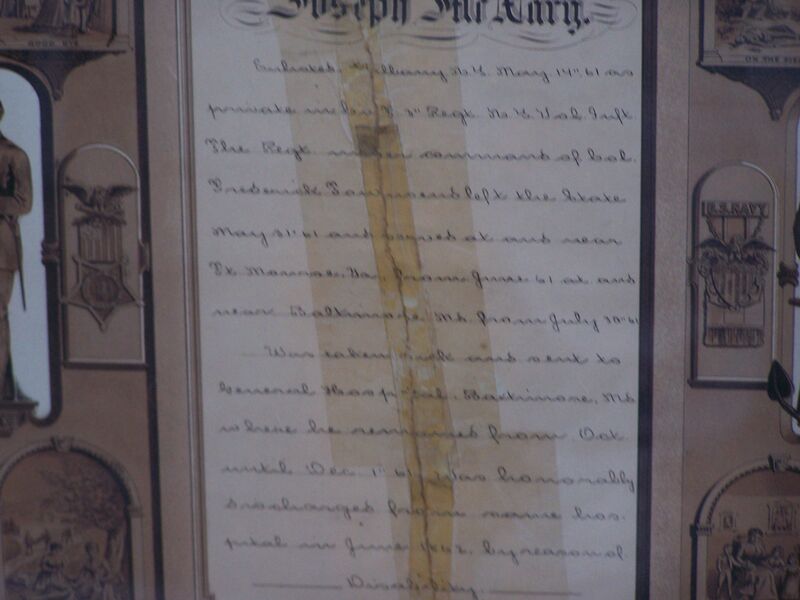 GOOD BYE
ON THE FIE
Joseph McNary.
Enlisted, Albany N.Y. May 14" 61 as
private in Co. 3" Regt. N.Y. Vol. Inft.
The Regt. under command of Col.
Frederick Townsend left the State
May 31" 61 and served at and near
Ft. Monroe, Va. from June 61 at and
near Baltimore, Md. from July 30" 61
Was taken sick and sent to
General Hospital, Baltimore, Md
where he remained from Oct.
until Dec. 1" 61. Was honorably
discharged from same hos-
pital in June 1862, by reason of
Disability.
U.S. NAVY